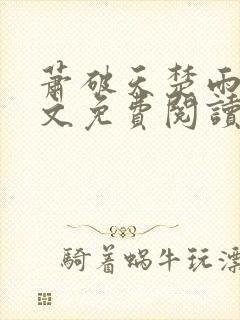 蕭破天楚雨
文免費閱讀
騎着蝸牛玩漂